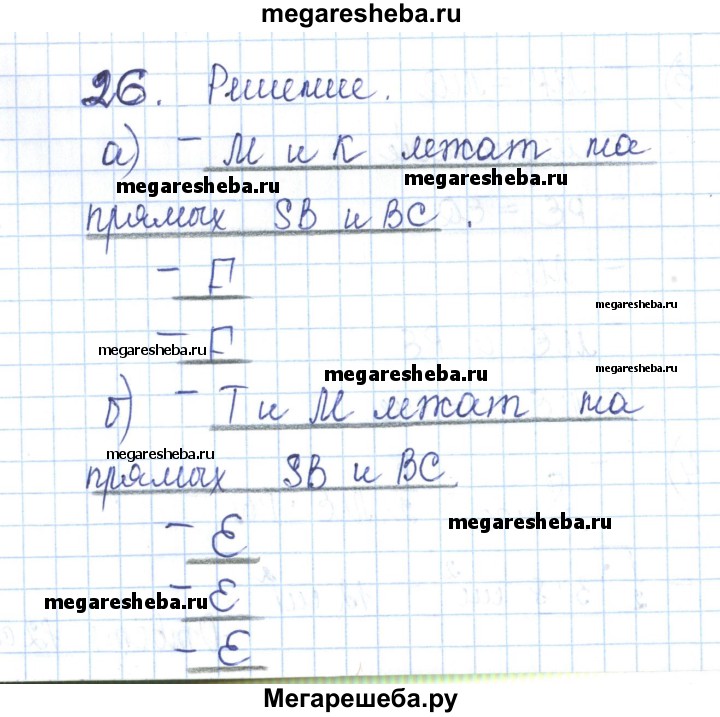 megaresheba.ru
26. Решение.
а) – М и К лежат на
megaresheba.ru megaresheba.ru
прямых SB и BC.
– F
megaresheba.ru
– F
megaresheba.ru
megaresheba.ru
б) – Т и М лежат на
megaresheba.ru
прямых SB и BC
– E
megaresheba.ru
– E
megaresheba.ru
– E
Мегарешеба.ру